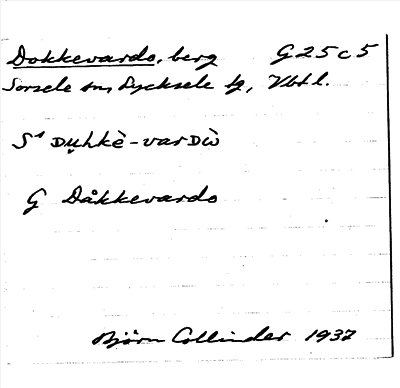 Dokkevardo, berg G 25 c 5
Sorsele sn, Lycksele tg, Vbtl.
S¹ Dųhkè-varDὼ
G Dåkkevardo
Björn Collinder 1937